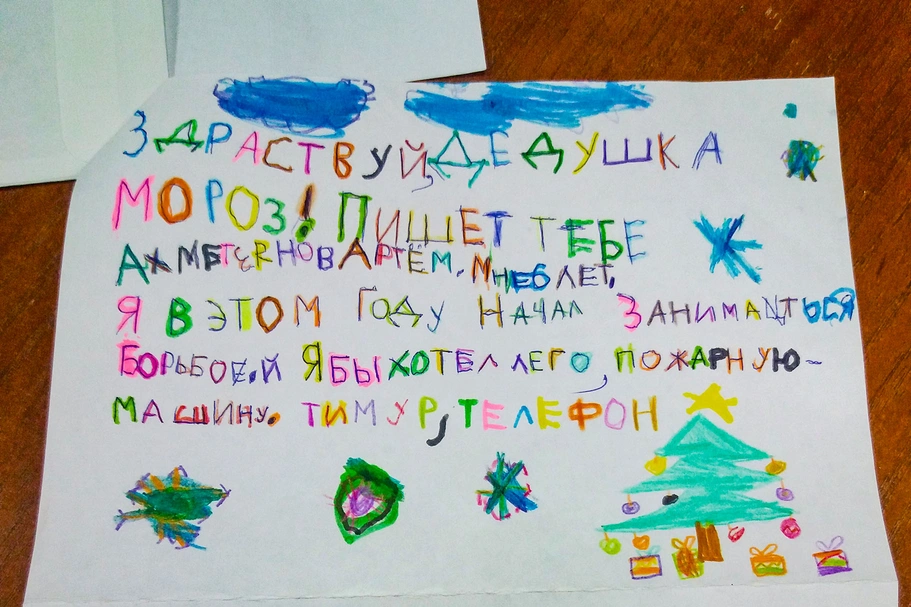 ЗДРАСТВУЙ, ДЕДУШКА
МОРОЗ! ПИШЕТ ТЕБЕ
АХМЕТЗЯНОВ АРТЁМ. МНЕ 6 ЛЕТ.
Я В ЭТОМ ГОДУ НАЧАЛ ЗАНИМАТЬСЯ
БОРЬБОЙ Я БЫ ХОТЕЛ ЛЕГО, ПОЖАРНУЮ-
МАШИНУ. ТИМУР, ТЕЛЕФОН